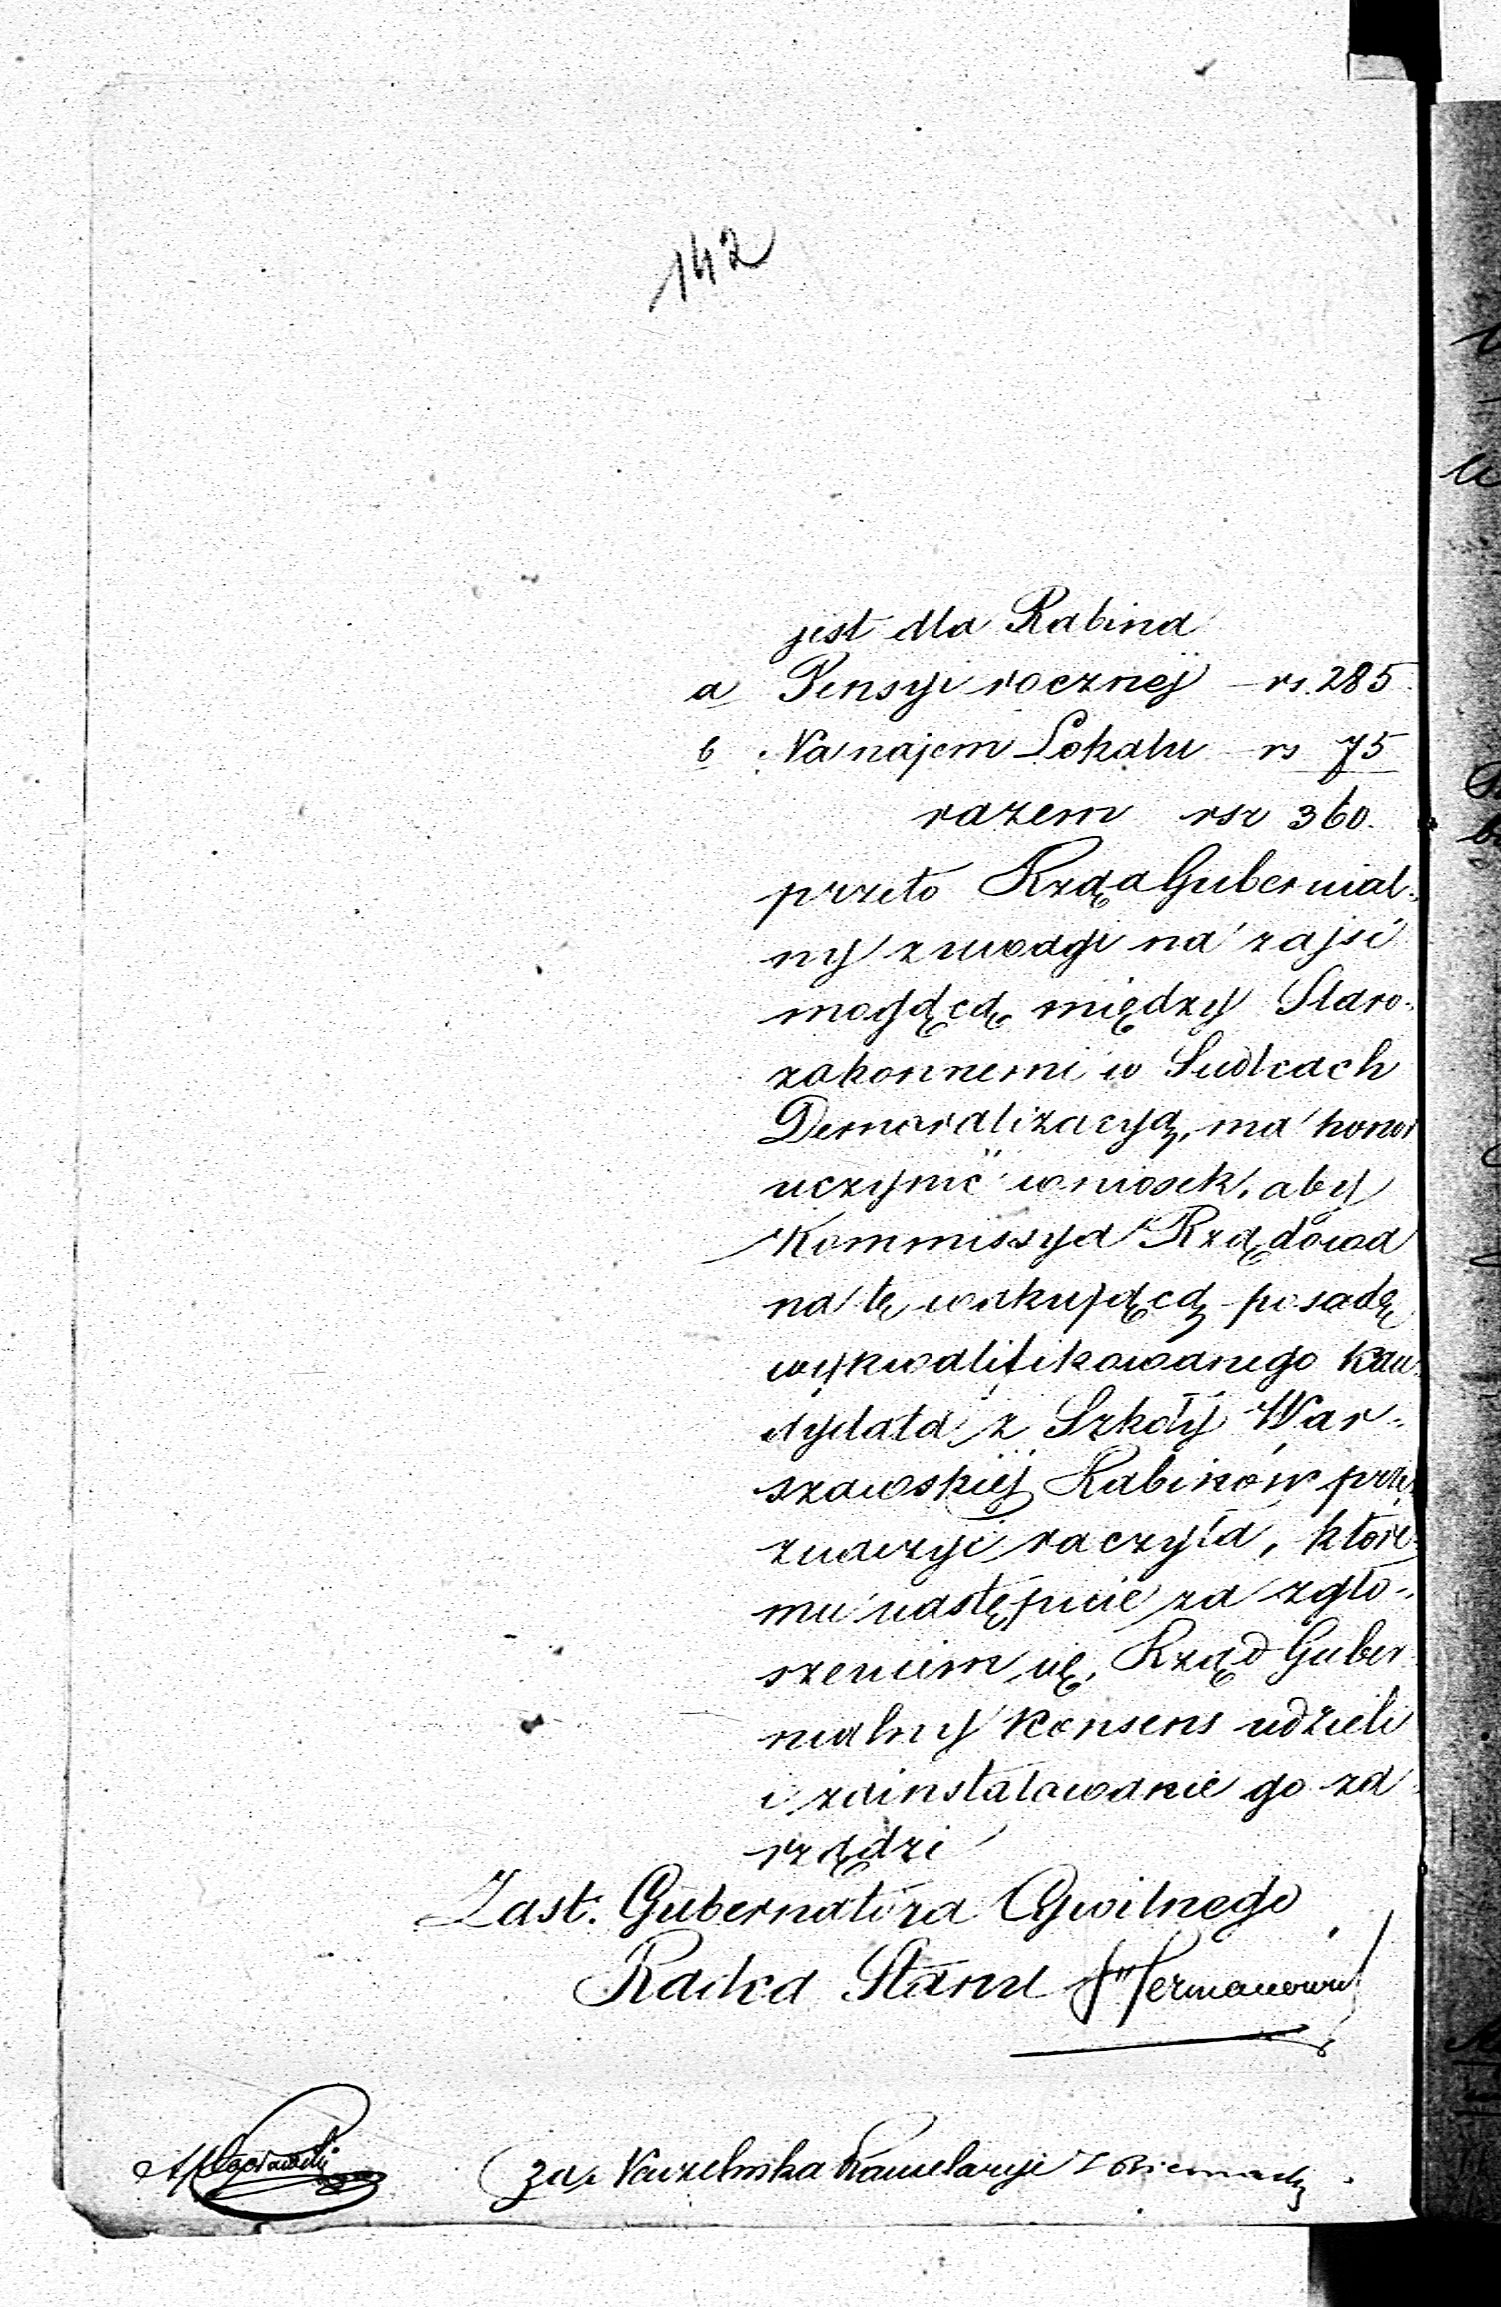 142
jest dla Rabina
a Pensyi rocznéj – rs. 285.
b Na najem Lokalu – rs 75
razem rsr 360.
przeto Rząd Gubernial-
ny z uwagi na zajść
mogącą między Staro-
zakonnemi w Siedlcach
Demoralizacyą, ma honor
uczynić wniosek, aby
Kommissya Rządowa
na tę wakującą posadę
wykwalifikowanego kan-
dydata z Szkoły War-
szawskiéj Rabinów prze-
znaczyć raczyła, które-
mu następnie za zgło-
szeniem się, Rząd Guber
nialny konsens udzieli
i zainstalowanie go za
rządzi
Zast. Gubernatora Cywilnego
Radca Stanu Hermanowicz
za Naczelnika Kancelaryi